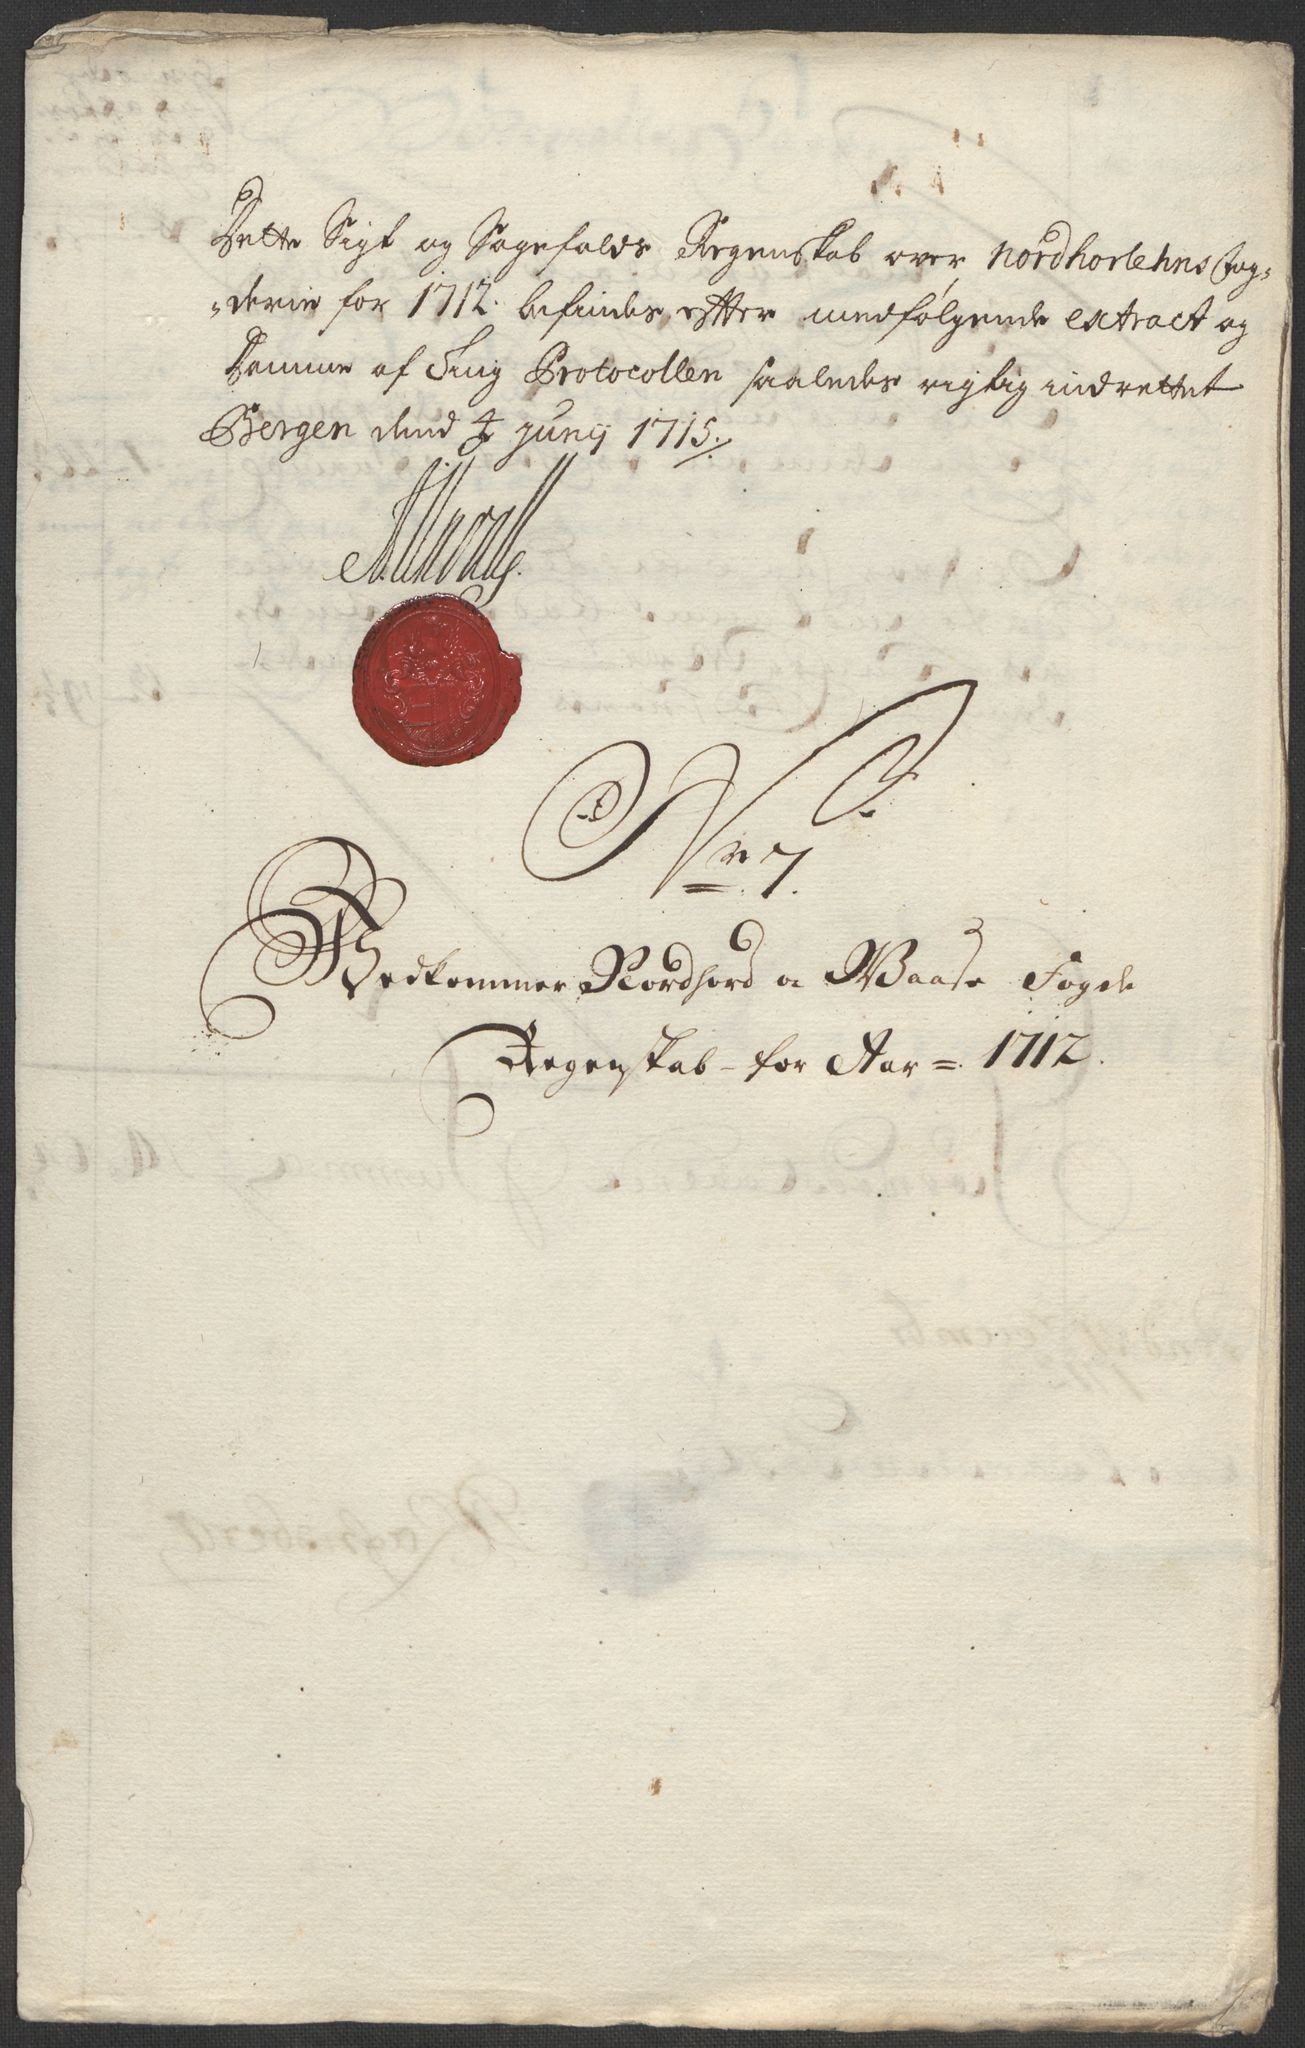 Dette Sigt og Sagefalds Regenskab over Nordhorlehns Fog=
=derie for 1712. befindes efter medfølgende extract og
Domme af Ting Protocollen saaledes rigtig indrettet
Bergen dend 4 Junij 1715.
No 7.
Vedkommer Nordhord o Waase Fogde
Regenskab - for Aar =. 1712.